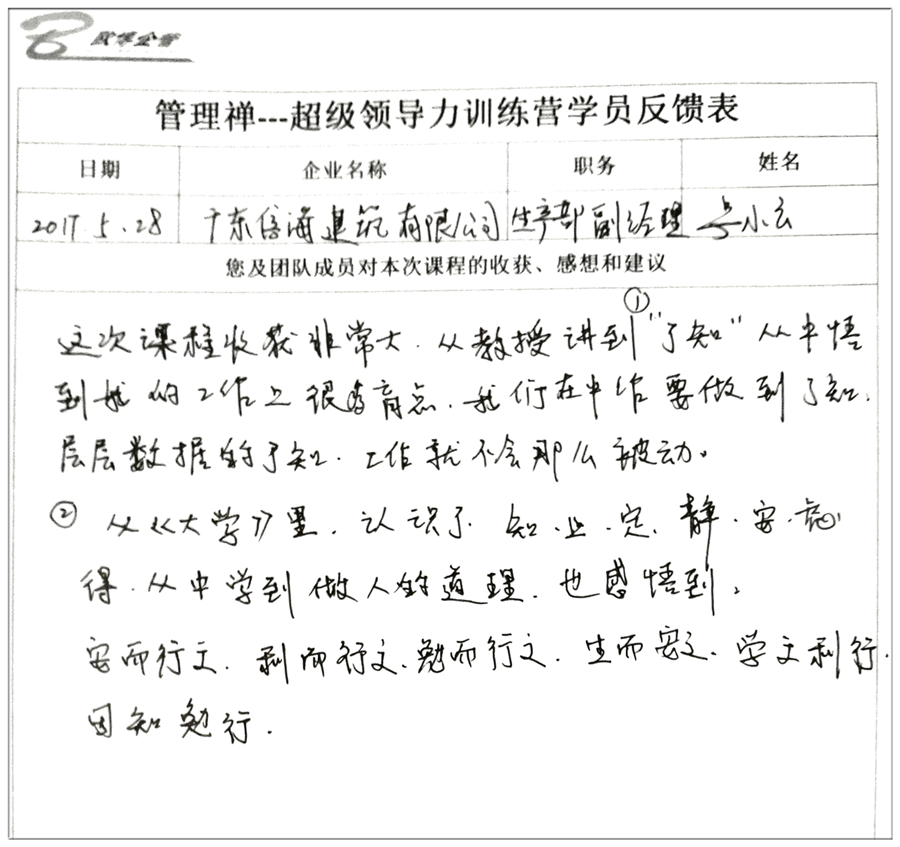 欧博企管
管理禅---超级领导力训练营学员反馈表
日期 企业名称 职务 姓名
2017 5.28 广东信海建筑有限公司 生产部副经理 小云
您及团队成员对本次课程的收获、感想和建议
①
这次课程收获非常大.从教授讲到"了知"从中悟
到我的工作上很多盲点.我们在中作要做到了知.
层层数据的了知.工作就不会那么被动。
② 从《大学》里.认识了知.止.定.静.安.虑
得.从中学到做人的道理.也感悟到,
安而行之.利而行之.勉而行之.生而安之.学之利行.
因知勉行.